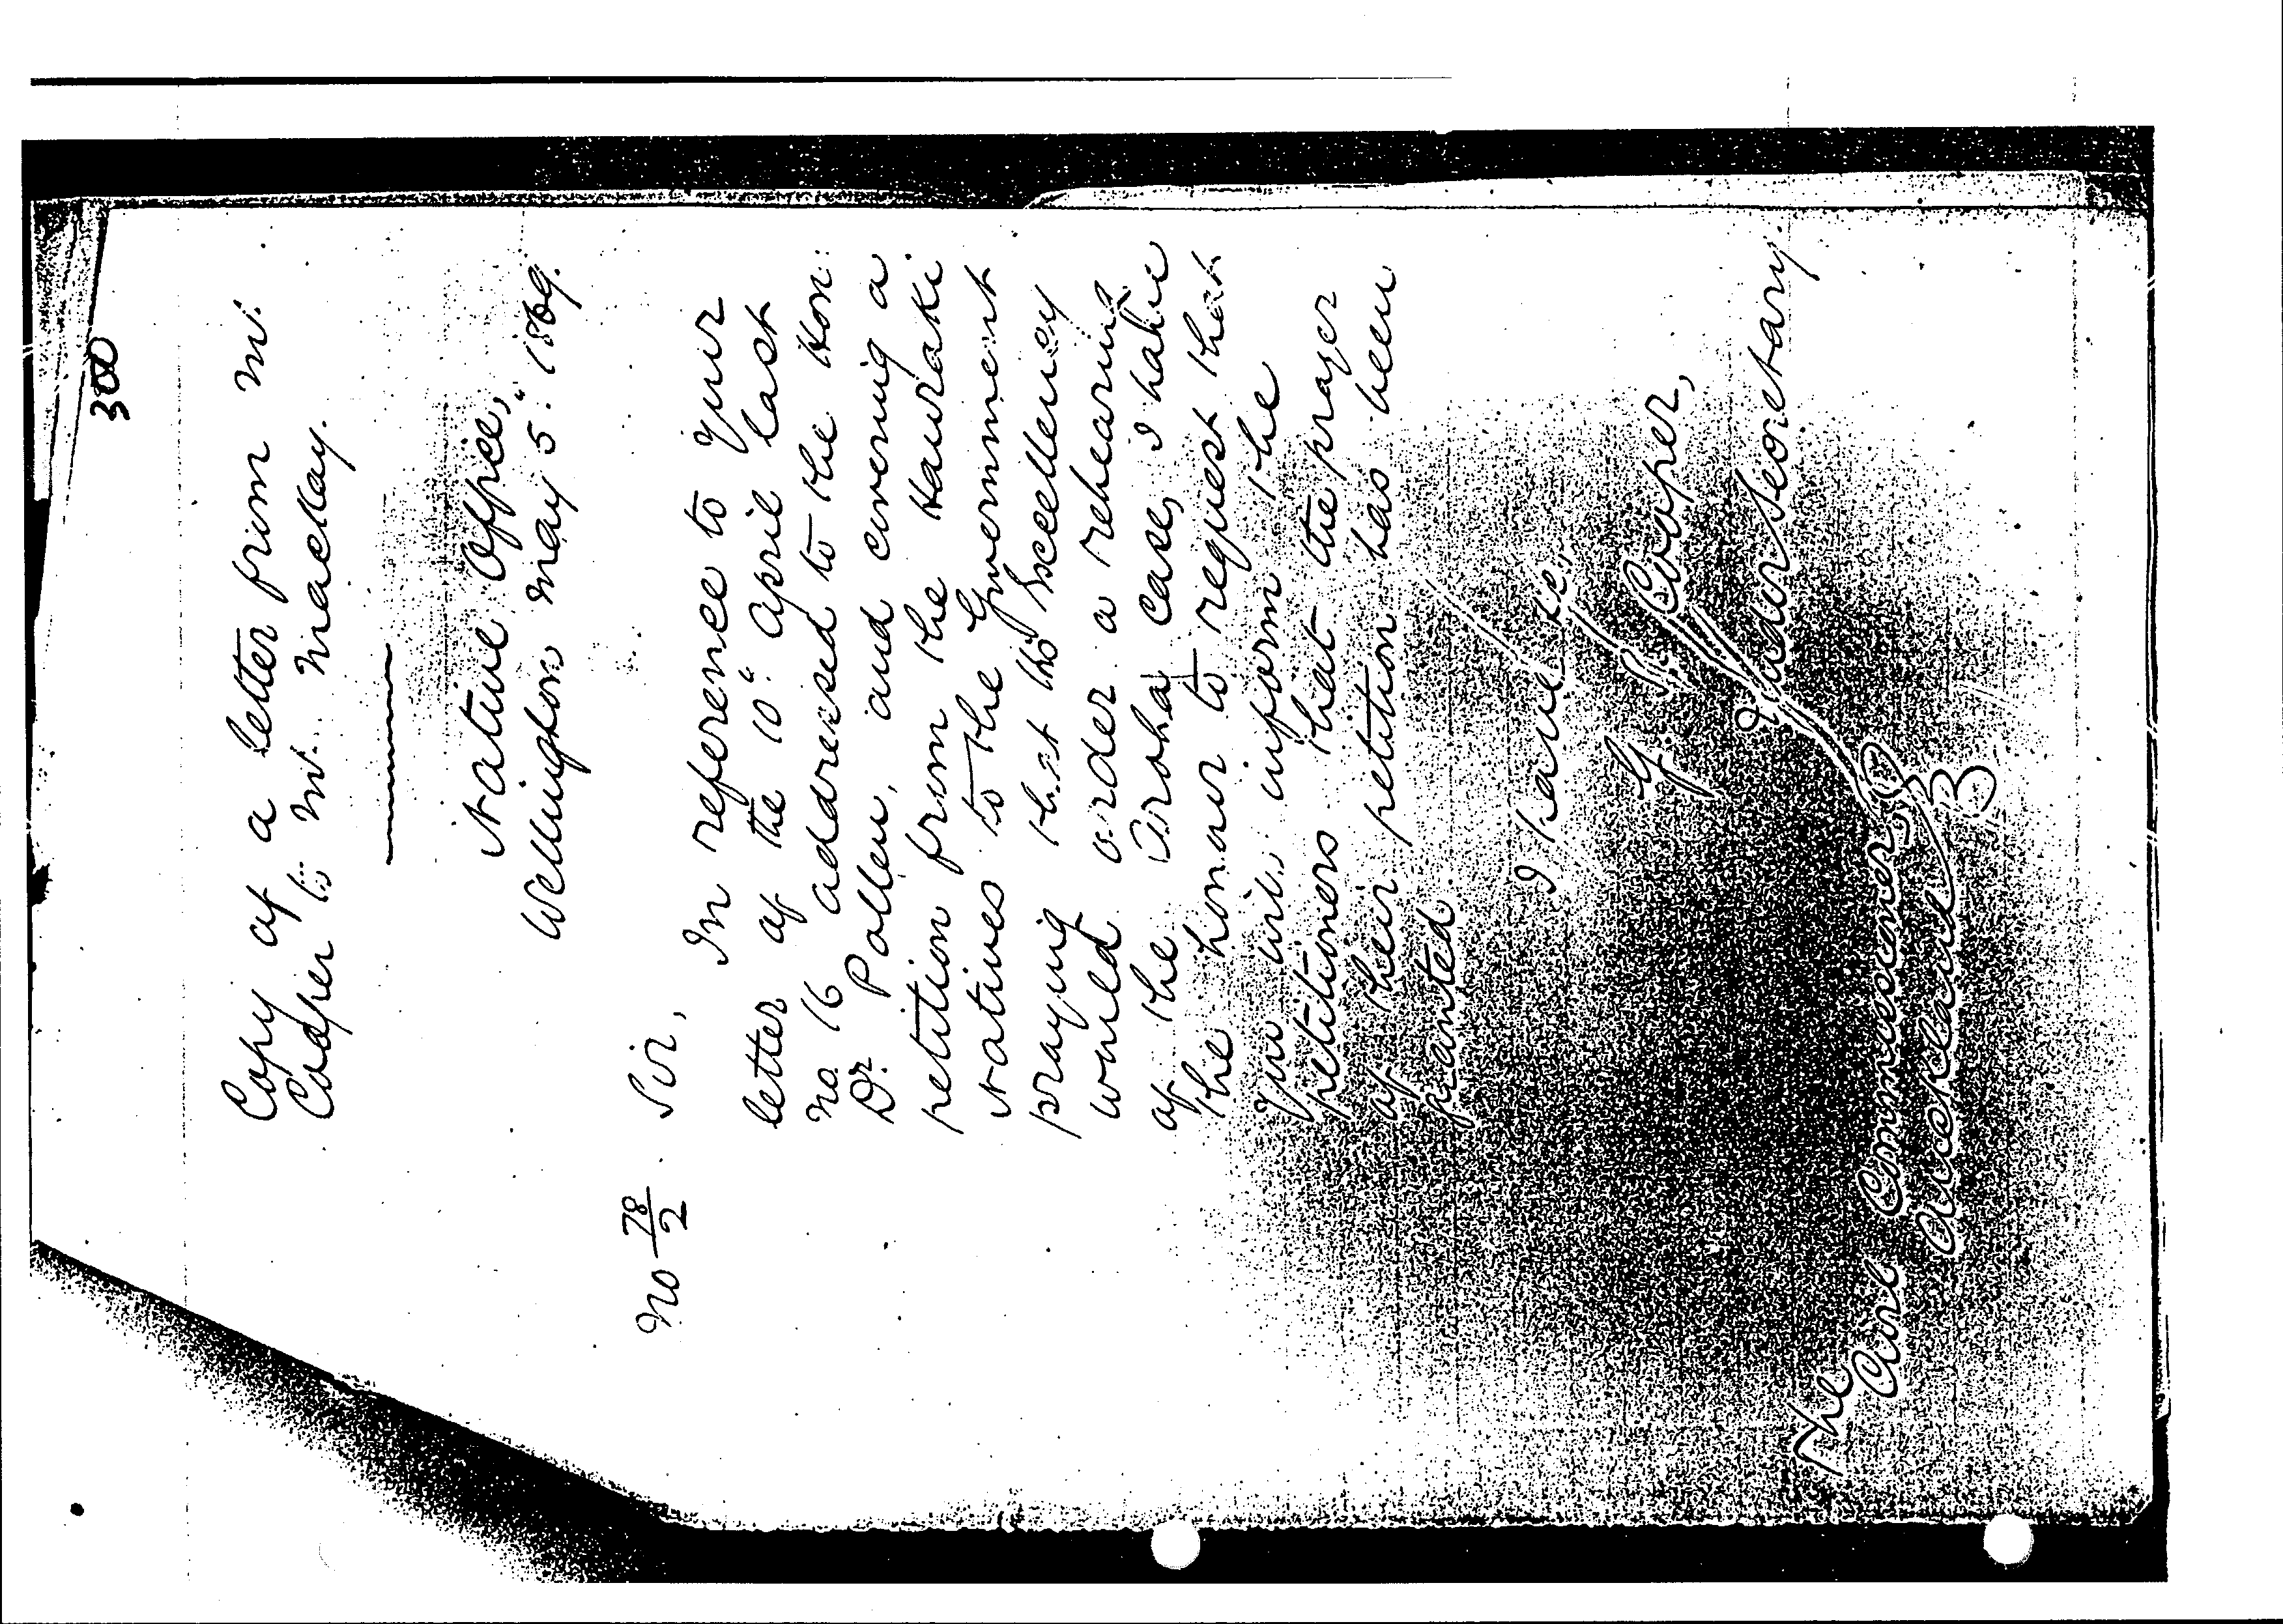 300
Copy of a letter from Mr.
Cooper to Mr. Mackay.
Native Office,
Wellington May 5" 1869.
No 78/2 Sir,
In reference to your
letter of the 10" April last
No. 16 addressed to the Hon:
Dr. Pollen, and covering a
petition from the Hauraki
Natives to the Government
praying that His Excellency
would order a rehearing
of the Aroha case, I have
the honour to request that
you will inform the
petitioners that the prayer
of their petition has been
granted.
I have &c,
G. S. Cooper,
Under Secretary.
The Civil Commissioner
Auckland